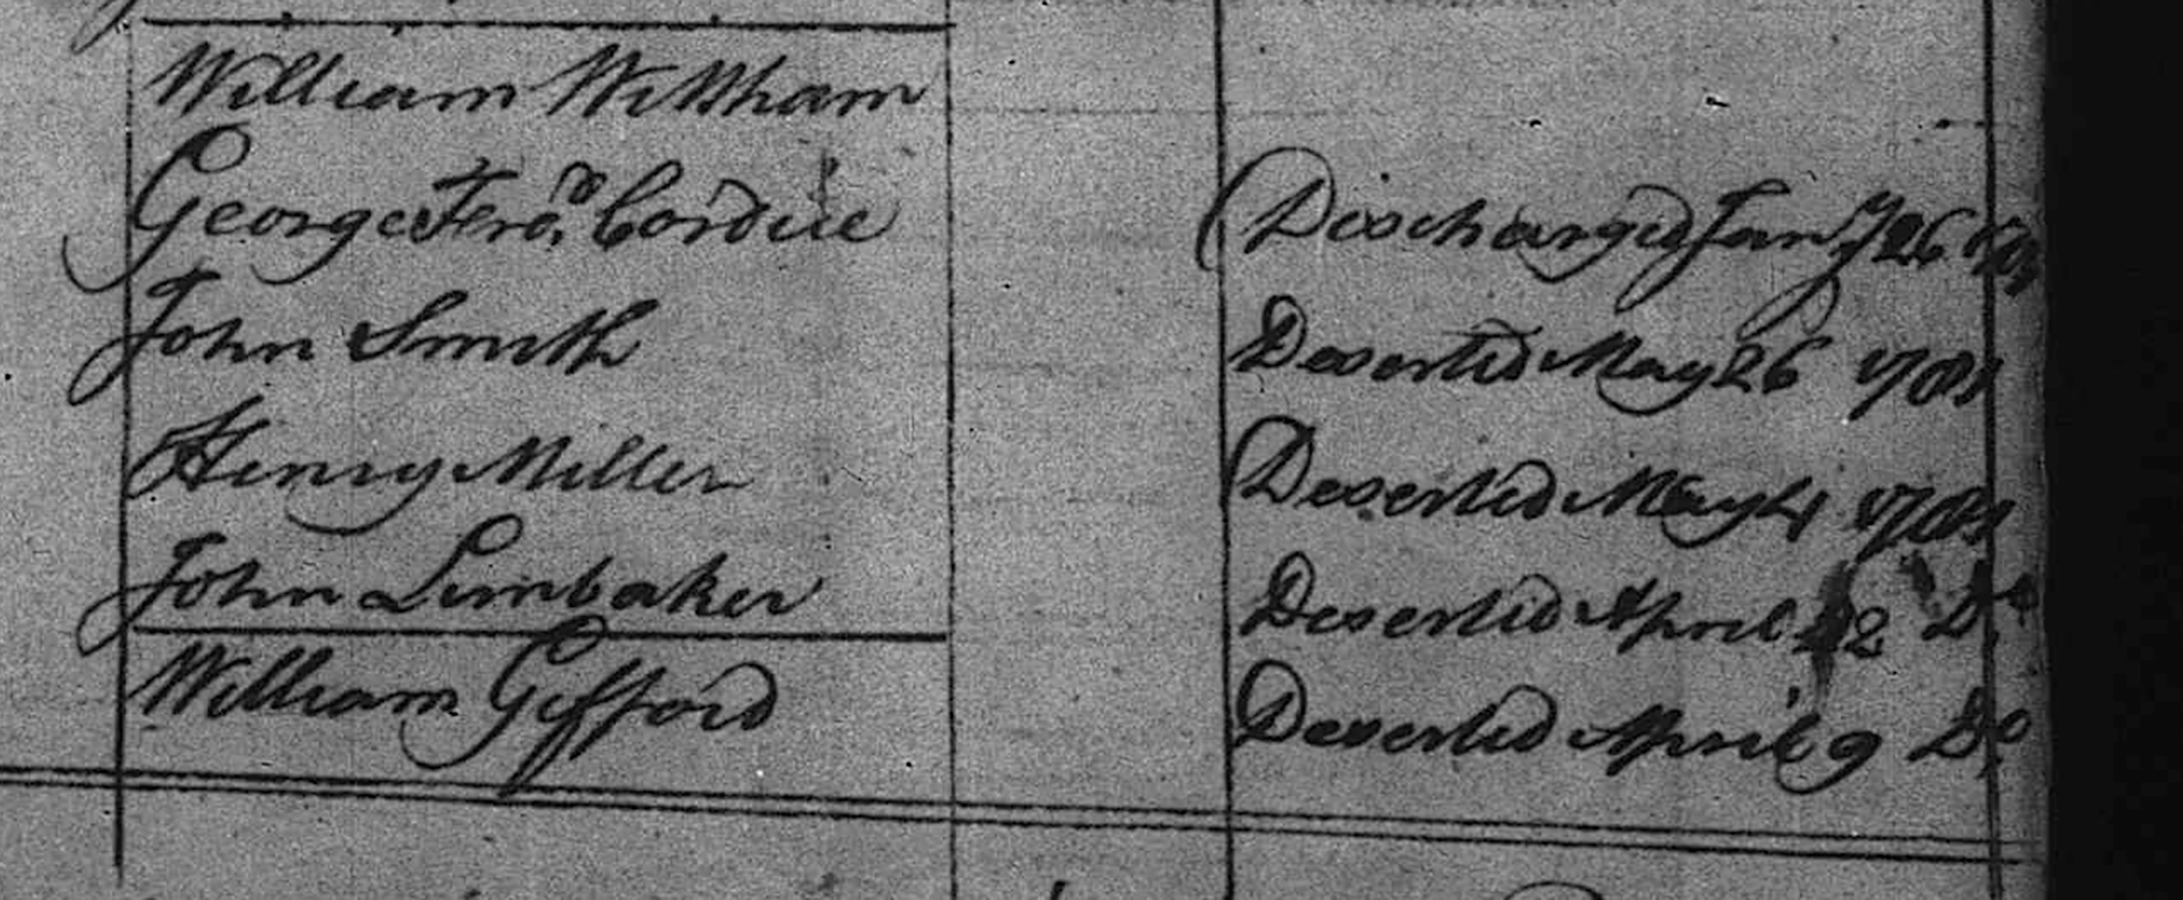 William Wittham
George Ferd. Cordiie Discharged Jany 26
John Smith Deserted May 26 1781
Henry Miller Deserted May 4 1781
John Limbaker Deserted April 2 Do
William Gifford Deserted April 9 Do